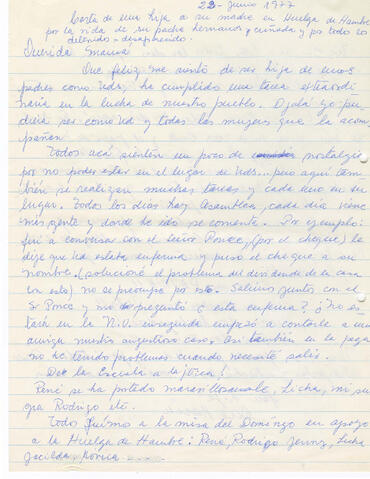 22-Junio 1977
Carta de una hija a su madre en Huelga de Hambre
por la vida de su padre hermanos y cuñada y por todos los
detenidos-desaparecidos.
Querida Mamá
Que feliz me siento de ser hija de unos
padres como Uds, ha cumplido una tarea extraordi
naria en la lucha de nuestro pueblo. Ojalá yo pu
diera ser como Ud y todas las mujeres que la acom
pañan.
Todos acá sienten un poco de nostalgia
por no poder estar en el lugar de Uds... pero aquí tam
bién se realizan muchas tareas y cada uno en su
lugar. Todos los días hay Asamblea, cada día viene
más gente y donde he ido se comenta. Por ejemplo:
fui a conversar con el Señor Ponce, (por el cheque) le
dije que Ud estaba enferma y puso el cheque a su
nombre. (solucioné el problema del dividendo de la casa
con esto) no se preocupe por esto. Salimos juntos con el
Sr Ponce y me preguntó ¿está enferma? ¿No es
tará en la N.U. enseguida empezó a contarle a una
amiga nuestro angustioso caso. Así también en la pega
no he tenido problemas cuando necesité salir.
De la Escuela a la JOTA!
René se ha portado maravillosamente, Licha, mi sue
gra Rodrigo etc.
Todos fuimos a la misa del Domingo en apoyo
a la Huelga de Hambre: René, Rodrigo Jenny, Licha